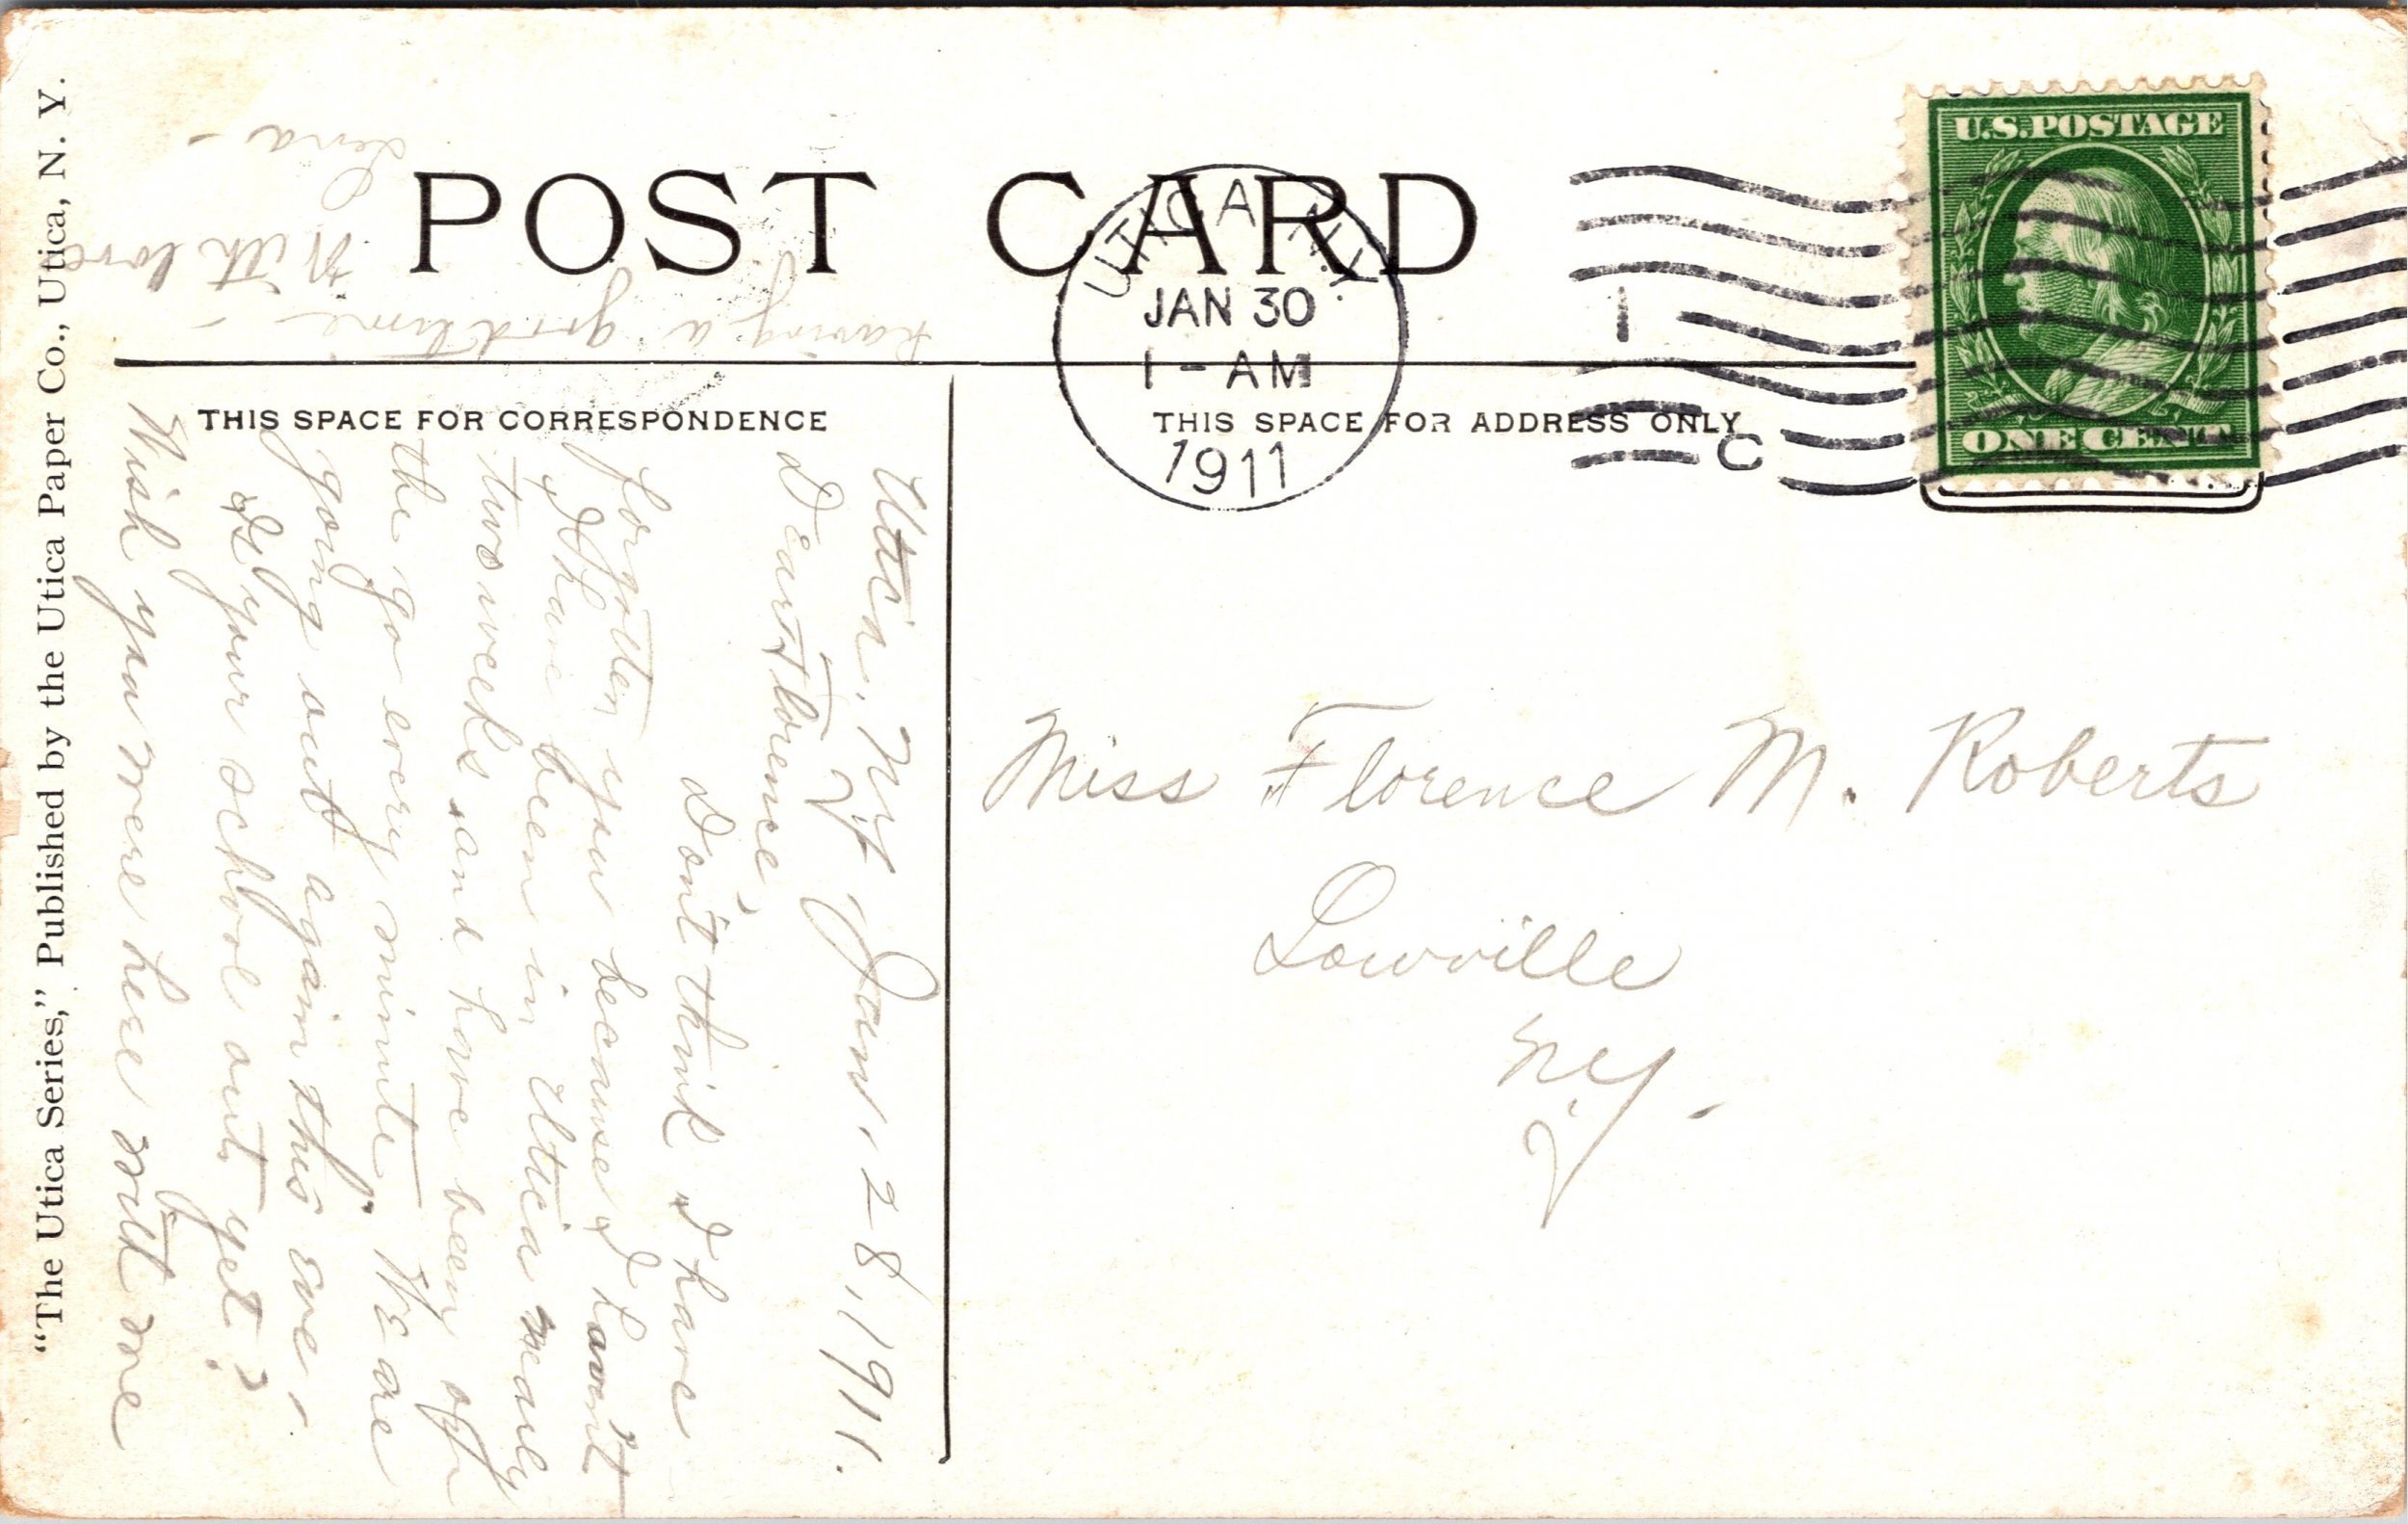 "The Utica Series," Published by the Utica Paper Co., Utica, N. Y.
POST CARD
UTICA N.Y.
JAN 30
1 - AM
1911
1
C
U.S.POSTAGE
ONE CENT
THIS SPACE FOR CORRESPONDENCE
THIS SPACE FOR ADDRESS ONLY
Utica, N.Y. Jan. 28, 1911.
Dear Florence,
Don't think I have
forgotten you because I havent
I have been in Utica nearly
two weeks and have been on
the go every minute. We are
going out again this eve. -
Is your school out yet?
Wish you were here with me
having a good time -
With love
Lena -
Miss Florence M. Roberts
Lowville
N.Y.